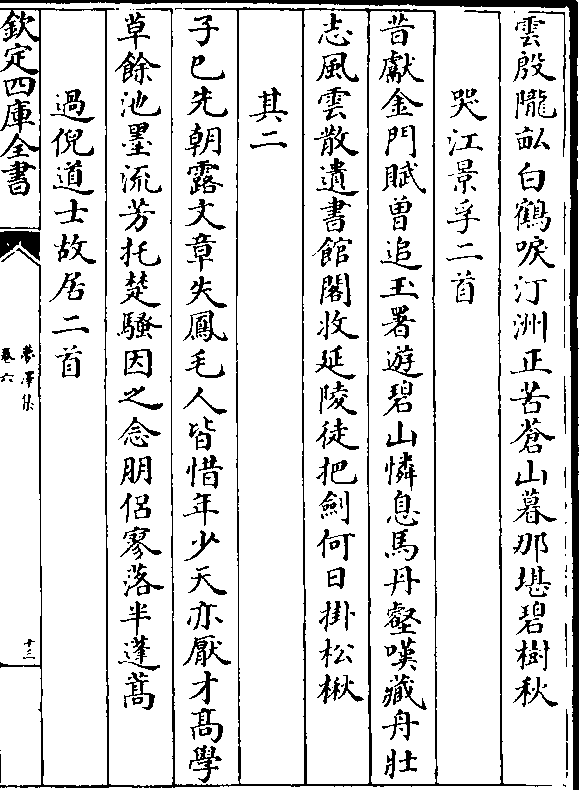 雲殷隴畝白鶴唳汀洲正苦蒼山暮那堪碧樹秋
哭江景孚二首
昔獻金門賦曽追玉署遊碧山憐息馬丹壑嘆藏舟壮
志風雲散遺書館閣收延陵徒把劍何日掛松楸
其二
子已先朝露文章失鳳毛人皆惜年少天亦厭才髙學
草餘池墨流芳托楚騷因之念朋侣寥落半蓬蒿
過倪道士故居二首
欽定四庫全書
夢澤集
卷六
十三